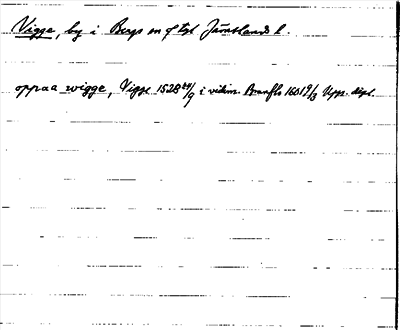 Vigge, by i Bergs sn o tgl Jämtlands l.
oppaa wigge, Vigge 1528 24/9 i vidim. 1601 9/3 Upps. dipl.